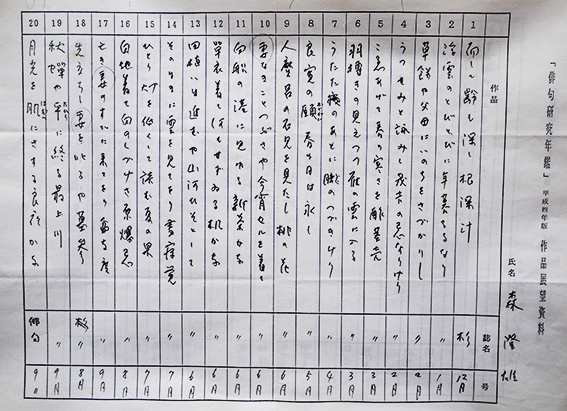 「俳句研究年鑑」平成四年版 作品展望資料
氏名 森 澄雄
作品 誌名 号
1 齢も深し根深汁 杉 12月
2 浮雲のとびとびに年暮るるなり 〃 1月
3 草餅や父母にいのちをさづかりし 〃 2月
4 うつせみと詠みし の忌なりけり 〃 2月
5 あげて春の寒さを 〃 3月
6 羽搏きの見えつつ雁の雲に入る 〃 3月
7 うたた寝のあとに朧のつづきけり 〃 4月
8 良寛の頤 春の日は永し 〃 5月
9 人麿呂の石見を見たし桃の花 〃 6月
10 妻なきことつぶさや今宵セルを着て 〃 6月
11 白船の港に見ゆる新茶かな 〃 6月
12 単衣着て何もせずゐる机かな 〃 6月
13 田植いま進むや山河ひそとして 〃 6月
14 そのままに雲を見てをり昼寝覚 〃 7月
15 ひとり灯を低くして読む夏の果 〃 7月
16 白地着て白のしづけさ原爆忌 〃 8月
17 亡き妻のすでに来てをり 〃 月
18 先立ちし妻を叱るや墓参り 杉 月
19 秋蝉や に終る最上川 〃 月
20 月光を肌にさする良夜かな 俳句 9月